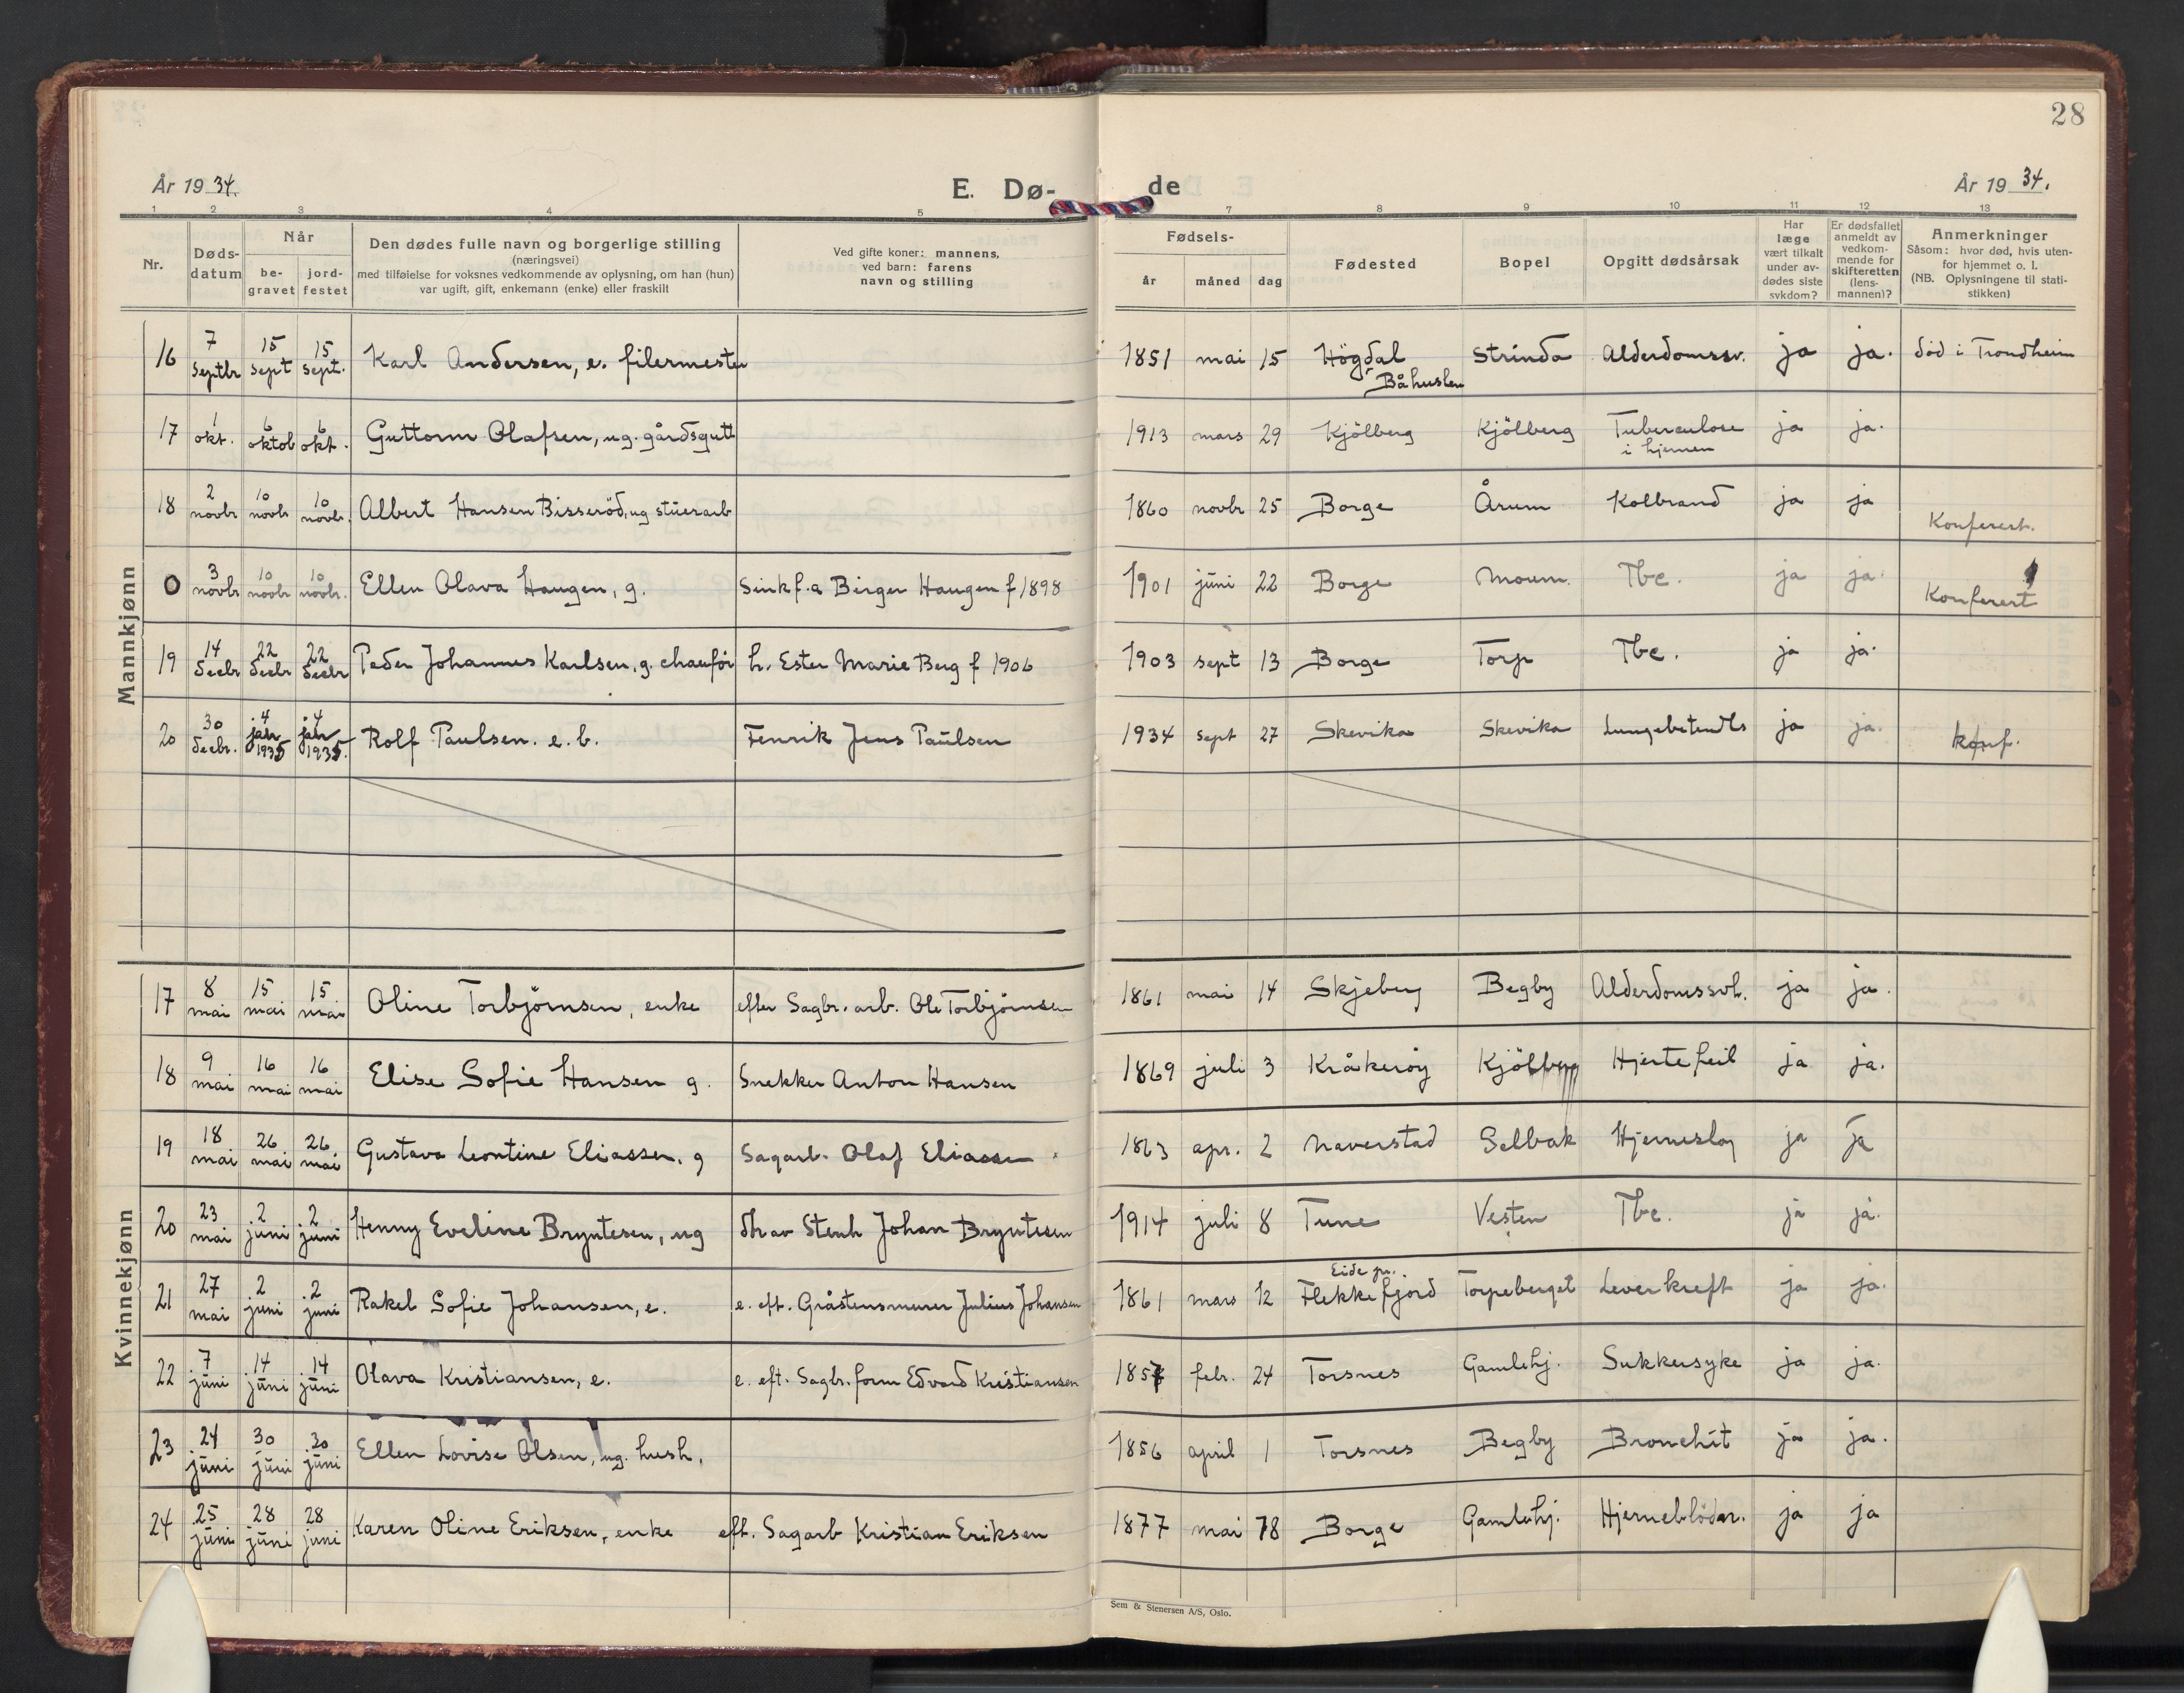 28
År 1934.
E. Dø-
de
År 1934.
1 2 3 4 5 7 8 9 10 11 12 13
Nr.
Døds-
datum
Når
be-
gravet
jord-
festet
Den dødes fulle navn og borgerlige stilling
(næringsvei)
med tilføielse for voksnes vedkommende av oplysning, om han (hun)
var ugift, gift, enkemann (enke) eller fraskilt
Ved gifte koner: mannens,
ved barn: farens
navn og stilling
Fødsels-
år måned dag
Fødested
Bopel
Opgitt dødsårsak
Har
læge
vært tilkalt
under av-
dødes siste
sykdom?
Er dødsfallet
anmeldt av
vedkom-
mende for
skifteretten
(lens-
mannen)?
Anmerkninger
Såsom: hvor død, hvis uten-
for hjemmet o. l.
(NB. Oplysningene til stati-
stikken)
Mannkjønn
16 7 Septbr 15 sept 15 sept. Karl Andersen, e. filermester 1851 mai 15 Högdal Båhuslen Strinda Alderdomssv. ja ja. död i Trondheim
17 1 okt. 6 oktob 6 okt. Guttorm Olafsen, ug. gårdsgutt 1913 mars 29 Kjölberg Kjölberg Tuberculose i hjernen ja ja.
18 2 novbr 10 novbr 10 novbr. Albert Hansen Bisseröd, ug stuerarb 1860 novbr 25 Borge Årum Kolbrand ja ja Konferert.
0 3 novbr 10 novbr 10 novbr. Ellen Olava Haugen, g. Sinkf.a Birger Haugen f 1898 1901 juni 22 Borge Moum. Tbc. ja ja. Konferert
19 14 decbr 22 decbr 22 decbr Peder Johannes Karlsen, g. chauför h. Ester Marie Berg f 1906 1903 sept 13 Borge Torp Tbc. ja ja.
20 30 decbr. 4 jan 1935 4 jan 1935. Rolf Paulsen. e. b. Fenrik Jens Paulsen 1934 sept 27 Skevika Skevika Lungebetendls ja ja. konf.
Kvinnekjønn
17 8 mai 15 mai 15 mai Oline Torbjörnsen, enke efter Sagbr. arb. Ole Torbjörnsen 1861 mai 14 Skjeberg Begby Alderdomssvh. ja ja.
18 9 mai 16 mai 16 mai Elise Sofie Hansen g. Snekker Anton Hansen 1869 juli 3 Kråkeröy Kjölberg Hjertefeil ja ja.
19 18 mai 26 mai 26 mai Gustava Leontine Eliassen. g Sagarb. Olaf Eliassen 1863 apr. 2 Naverstad Selbak Hjerneslag ja ja
20 23 mai 2 juni 2 juni Henny Eveline Bryntesen, ug dh av Stenh Johan Bryntesen 1914 juli 8 Tune Vesten Tbc. ja ja.
21 27 mai 2 juni 2 juni Rakel Sofie Johansen, e. e. eft. Gråstensmurer Julius Johansen 1861 mars 12 Eide pr. Flekkefjord Torpeberget Leverkreft ja ja.
22 7 juni 14 juni 14 juni Olava Kristiansen, e. e. eft. Sagbr. form Edvard Kristiansen 1857 febr. 24 Torsnes Gamlehj. Sukkersyke ja ja.
23 24 juni 30 juni 30 juni Ellen Lovise Olsen, ug. hush. 1856 april 1 Torsnes Begby Bronchit ja ja.
24 25 juni 28 juni 28 juni Karen Oline Eriksen, enke eft. Sagarb Kristian Eriksen 1877 mai 18 Borge Gamlehj. Hjerneblödn. ja ja
Sem & Stenersen A/S, Oslo.